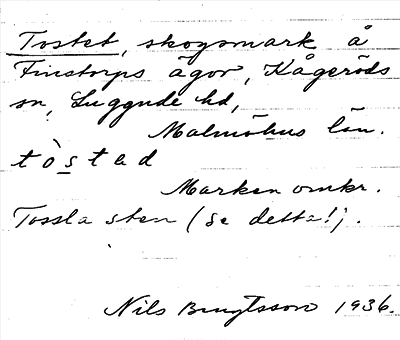 Tostet, skogsmark å
Finstorps ägor, Kågeröds
sn, Luggude hd,
Malmöhus län.
tòstad
Marken omkr.
Tossla sten (se detta!).
Nils Bengtsson 1936.